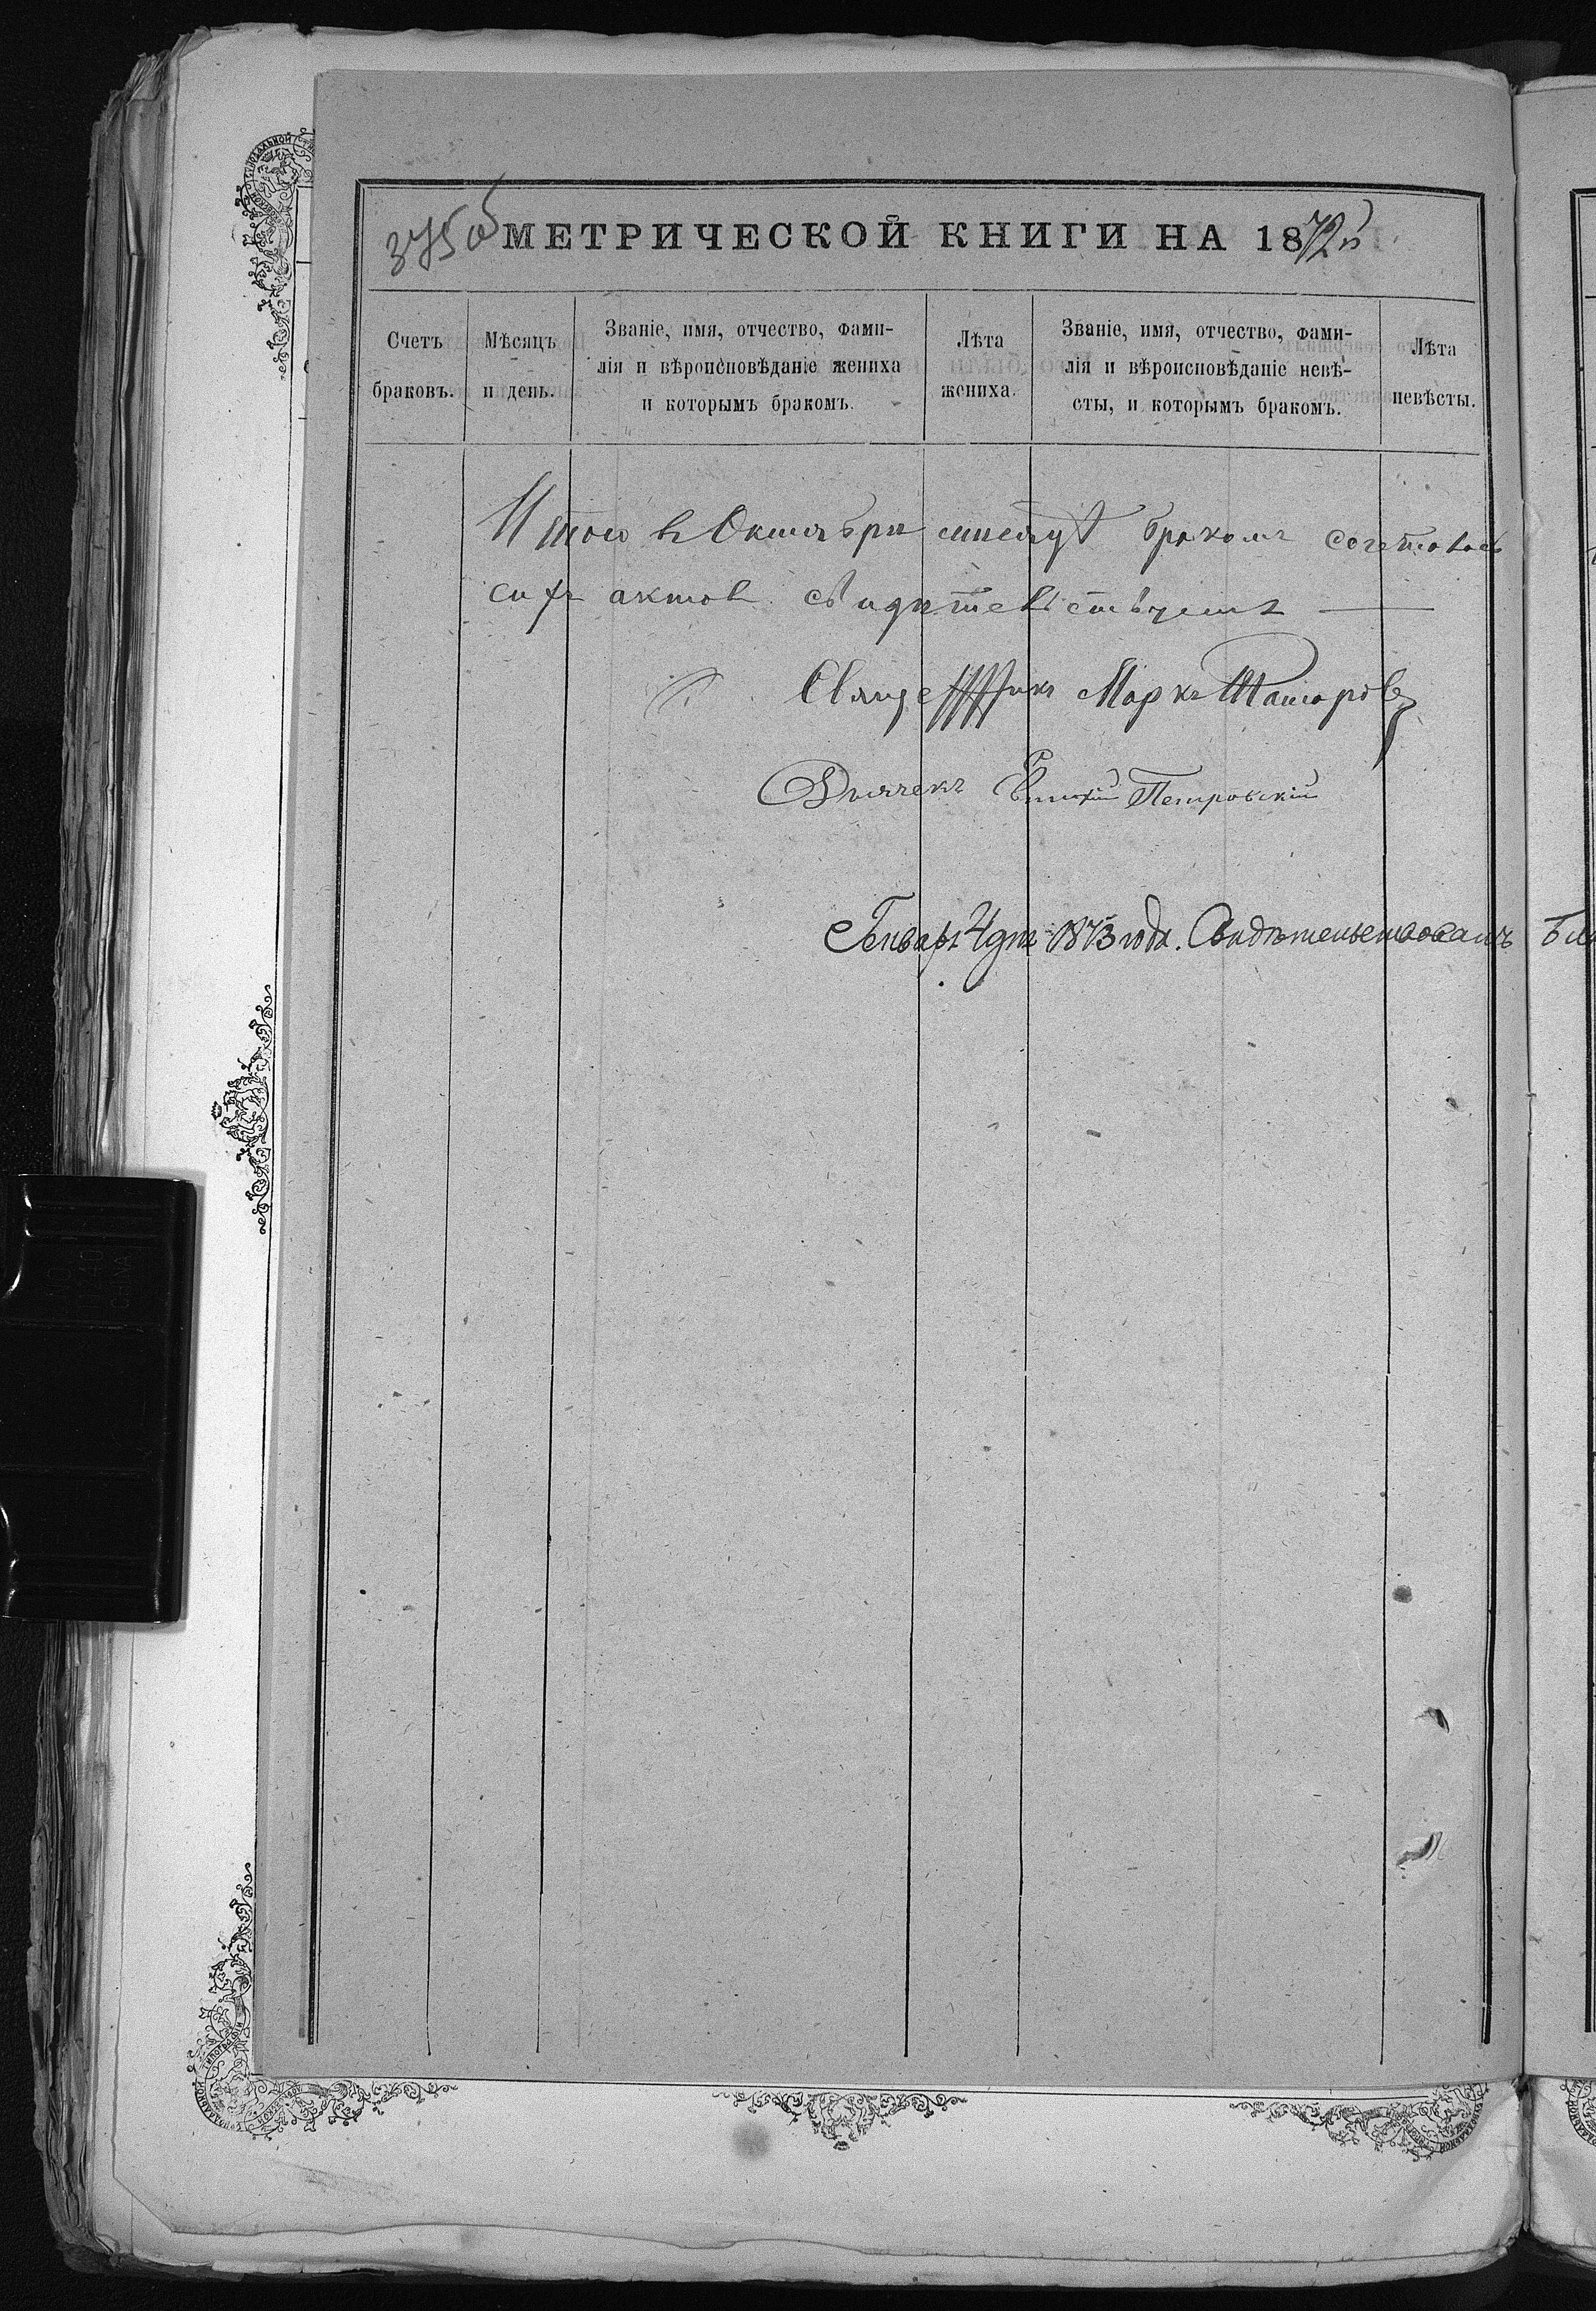 375 об
МЕТРИЧЕСКОЙ КНИГИ НА 1872й
Счетъ браковъ.
Мѣсяцъ и день.
Званіе, имя, отчество, фами-
лія и вѣроисповѣданіе жениха
и которымъ бракомъ.
Лѣта жениха.
Званіе, имя, отчество, фами-
лія и вѣроисповѣданіе невѣ-
сты, и которымъ бракомъ.
Лѣта невѣсты.
Итого в Октябри бракомъ сочеталось
актов
Священникъ Маркъ
Дьячекъ Петровскій
Генваря 4 дня 1873 года. Свидѣтельствовалъ Бла